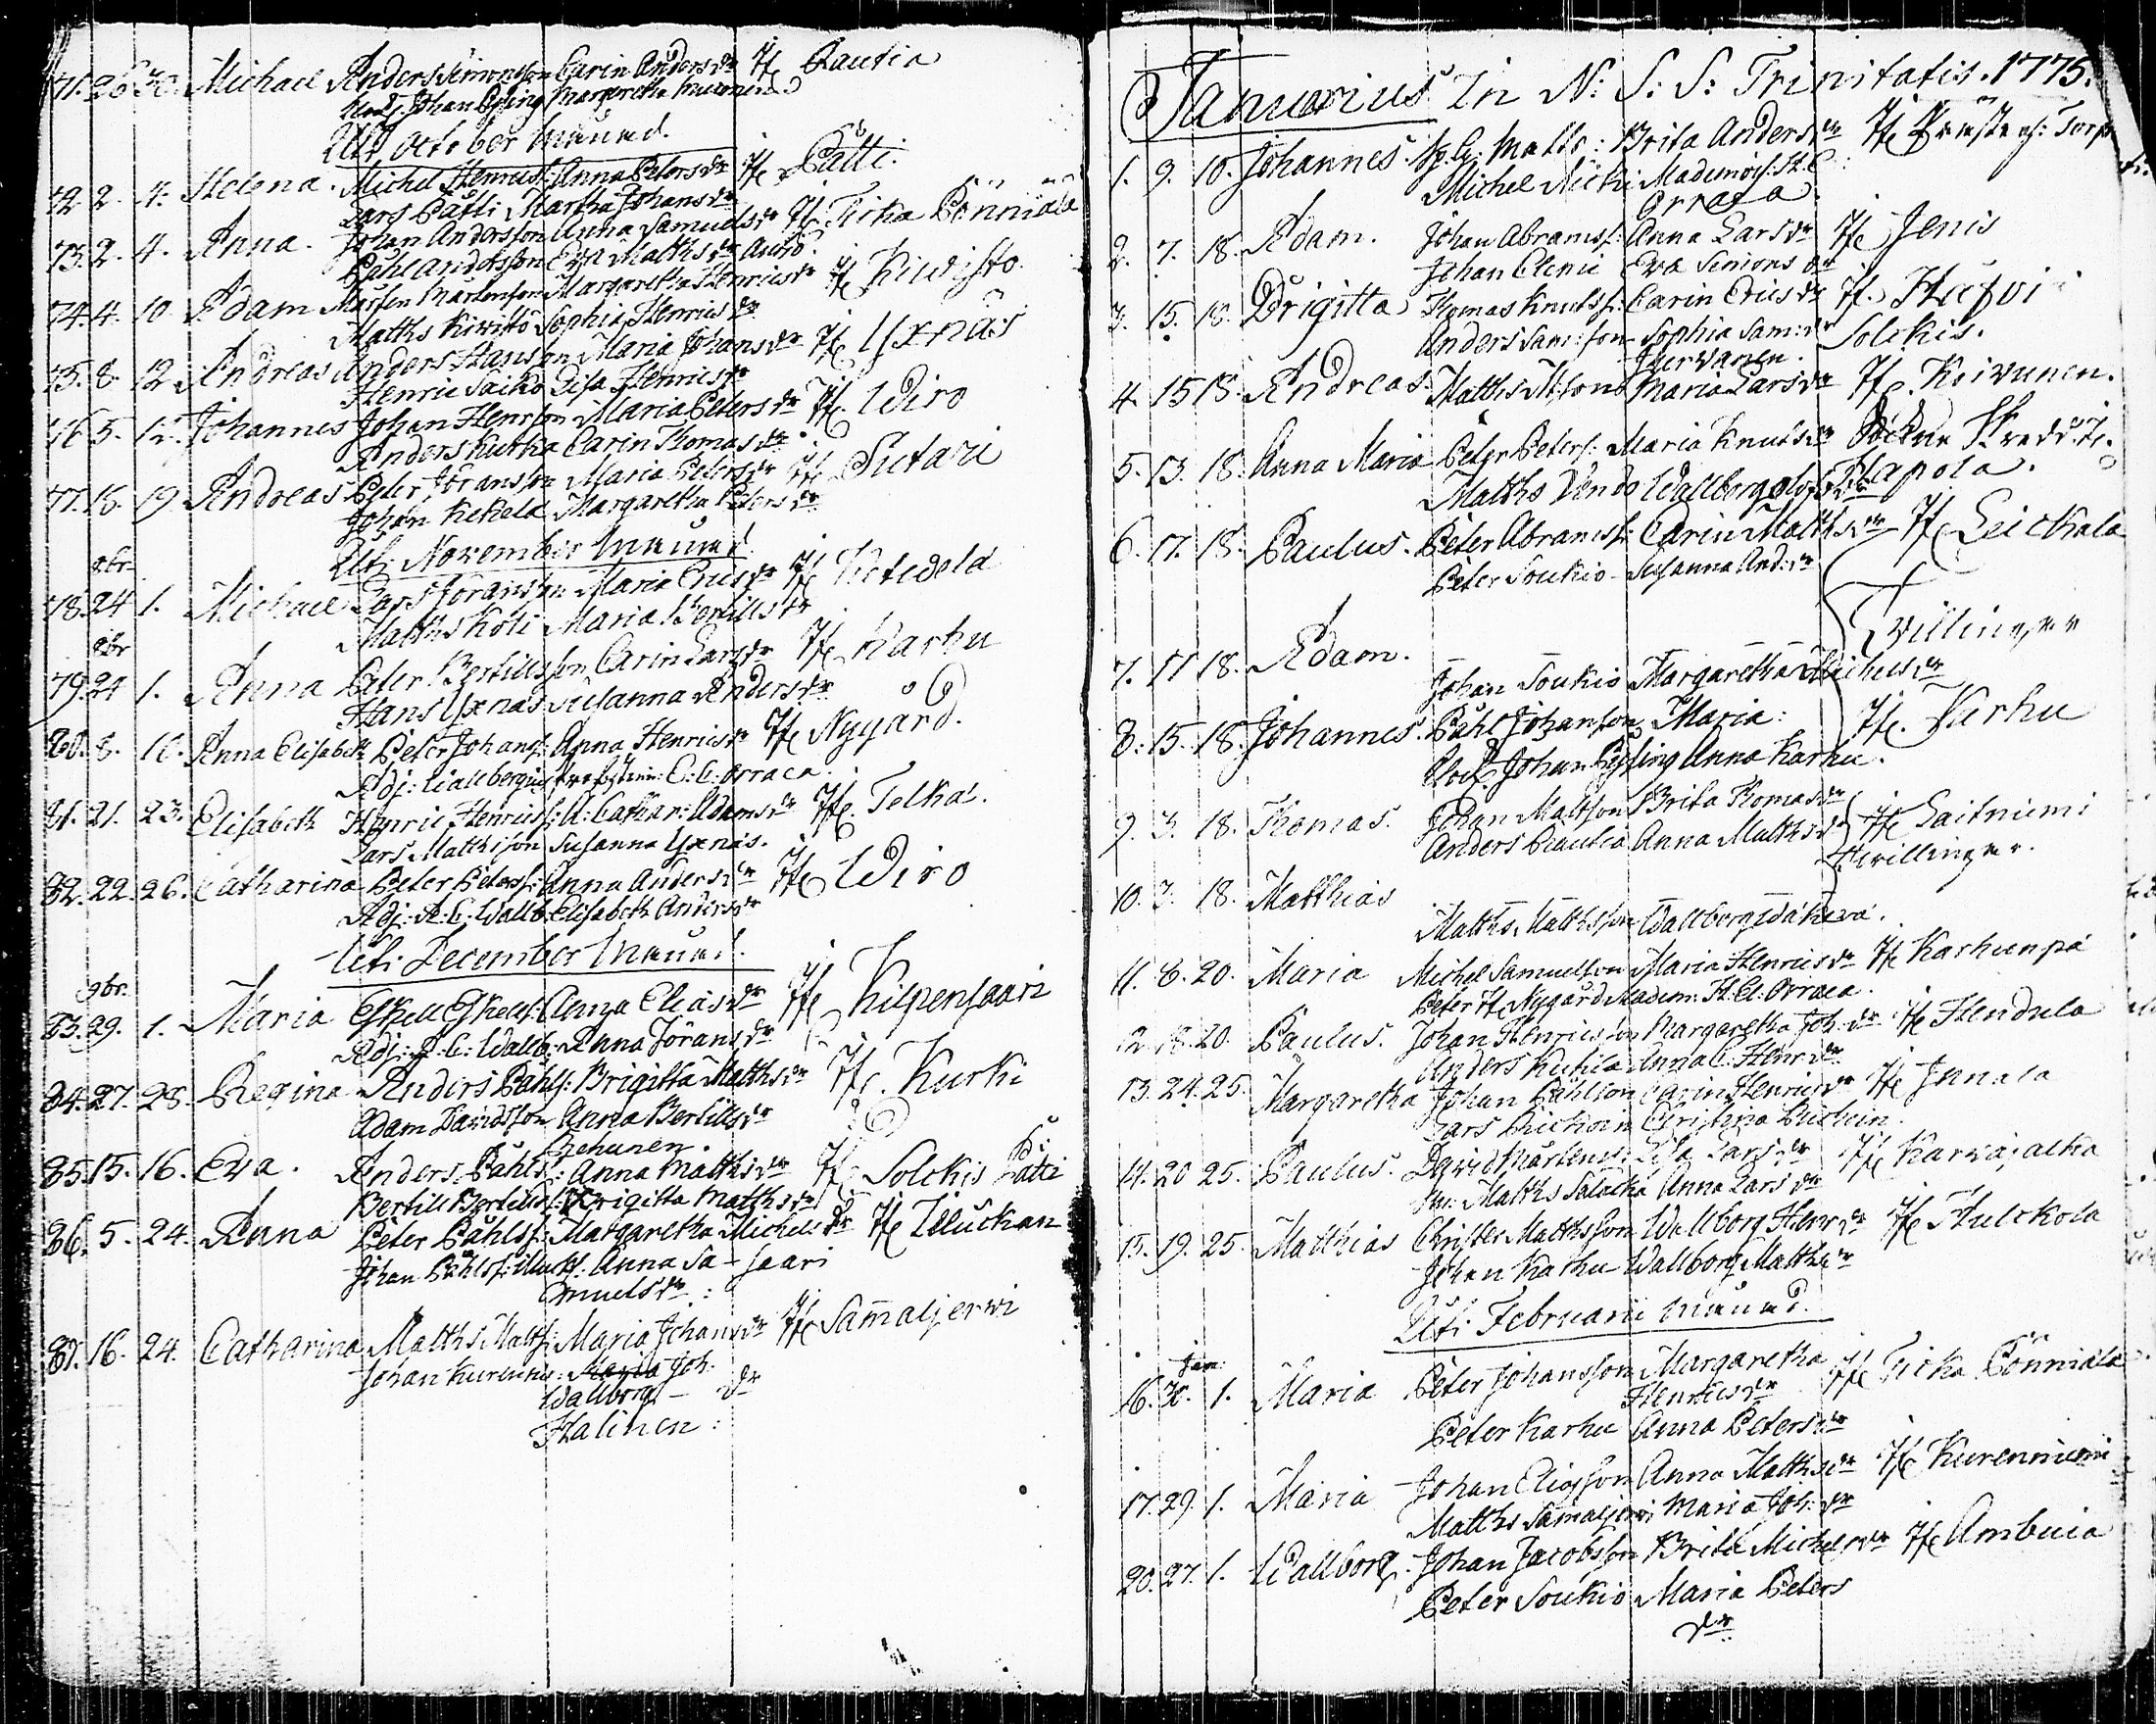 71. 26 30. Michael Anders Simonsson Carin Anders dr Hfe Rautia
Johan Margeretha
Uti October Månad.
72. 2. 4. Helena. Michel Henricss: Anna Peters dr Hfe Pätti.
Lars Pätti Martha Johans dr
73. 2. 4. Anna. Johan Andersson Anna Samuels dr Hfe Ticka Pönniälä
Påhl Andersson Eva Matths dr
74. 4. 10 Adam Mårten Mårtensson Margaretha Henrics dr Hfe Kiwistö
Matths Kiwistö Sophia Henrics dr
75. 8. 12 Andreas Anders Hansson Maria Johans dr Hfe Yxnäs
Henric Saiko Lisa Henrics dr
76 5. 12. Johannes Johan Henrsson Maria Peters dr Hfe Wiro
Anders Kurtka Carin Thomas dr
77. 16. 19 Andreas Peter Jöransson Maria Peters dr Hfe Sutari
Johan Kekelä Margaretha Peters dr
Uti November Månad
8br
78. 24 1. Michael Lars Jöransson Maria Erics dr Hfe
Matths Koli Maria Bertills dr
8br
79. 24 1. Anna Peter Bertillsson Carin Lars dr Hfe Karhu
Hans Yxnäs Susanna Anders dr
80. 8. 16. Anna Elisabeth Peter Johanss: Anna Henrics dr Hfe Nygård.
Adj: Wallbergius E: C: Orraea.
81. 21. 23. Elisabeth Henric Henricss: A: Cathar: Adams dr Hfe Telkä.
Lars Matthsson Susanna Yxnäs.
82. 22. 26. Catharina Peter Peterss: Anna Anders dr Hfe Wiro
Adj: A: C: Wallb: Elisabeth Anders dr
Uti December Månad.
9br.
83. 29. 1. Maria Eskell Eskells: Anna Elias dr Hfe Kilpensaari
Adj: A: C: Wallb: Anna Jörans dr
84. 27. 28. Regina Anders Påhls: Brigitta Matths dr Hfe. Kurki
Adam Davidsson Anna Bertills dr
85. 15. 16. Eva. Anders Påhls: Anna Matths dr Hfe Solckis Pätti
Bertill Bertills: Brigitta Matths dr
86. 5. 24. Anna Peter Påhlss: Margaretha Michels dr Hfe Muckan
Johan Påhlss: Anna Sa- saari
muels dr:
87. 16. 24. Catharina Matths Matths: Maria Johans dr Hfe Sämäljerwi
Johan Kurennie: Maria Joh.
Wallborg – dr
Halinen:
Januarius In N: S: S: Trinitatis. 1775.
1. 9. 10. Johannes. Matts: Brita Anders dr Hfe
Michel Micki Madem: H. C:
Orraea
2. 7. 18. Adam. Johan Abramss: Anna Lars dr Hfe Jenis
Johan Clenii Eva Simons dr
3. 15. 18. Brigitta Thomas Knutss: Carin Erics dr Hfe
Anders Sam: son Sophia Sam: dr Solckis.
4. 15 18. Andreas. Matths Maria Lars dr Hfe Koivunen.
5. 13. 18. Anna Maria Peter Peterss: Maria Knuts dr
Matths Wallborg Hapola.
6. 17. 18. Paulus. Peter Abramss: Carin Matths dr Hfe Leickala
Peter Soukio – Susanna And: dr
Tvillingar
7. 17 18. Adam.
Johan Soukio Margaretha Michels dr
8. 15. 18. Johannes. Påhl Johansson Maria: Hfe. Karhu
Johan Anna Karhu.
9. 3. 18. Thomas. Johan Mattsson Brita Thomas dr Hfe Laitniemi
Anders Rautia Anna Matths dr
Tvillingar.
10. 3. 18. Matthias
Matths Matthsson Wallborg
11. 6. 20. Maria Michel Samuelsson Maria Henrics dr Hfe Karhunpä
Peter Hfe Nygård Madem: H. El: Orraea.
12 18. 20. Paulus. Johan Henricsson Margaretha Joh. dr Hfe Hendula
Anders Kukila Anna C. Henr: dr
13. 24. 25. Margaretha Johan Påhlson Carin Henrics dr Hfe Jnnala
Lars Christina
14. 20 25. Paulus. David Mårtenss: Lisa Lars dr Hfe Karvajalka
Matths Salacka Anna Lars dr
15. 19. 25. Matthias Christer Matthsson Wallborg Henr dr Hfe Hulckola
Johan Karhu Wallborg Matths dr
Uti Februarii Månad.
Jan:
16. 30. 1. Maria Peter Johansson Margaretha Hfe Ticka Pönniälä
Henrics dr
Peter Karhu Anna Peters dr
17. 29. 1. Maria Johan Eliasson Anna Matths dr Hfe Kurenniemi
Matths Sämäljerwi Maria Joh: dr
20. 27. 1. Wallborg. Johan Jacobsson Brita Michels dr Hfe Ambuia
Peter Soukio Maria Peters
dr